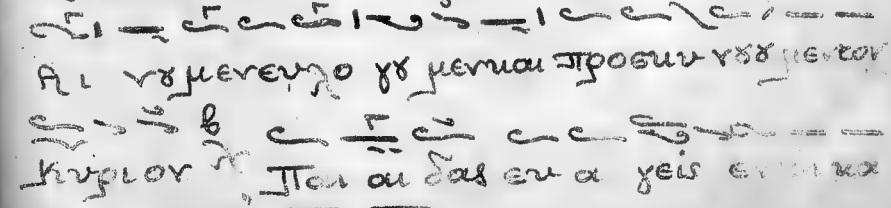 Αι νȣ μεν ευλο γȣ μεν και προσκυ νȣȣ μεν τον
Κυριον Παι αι δας ευ α γεις εν κα